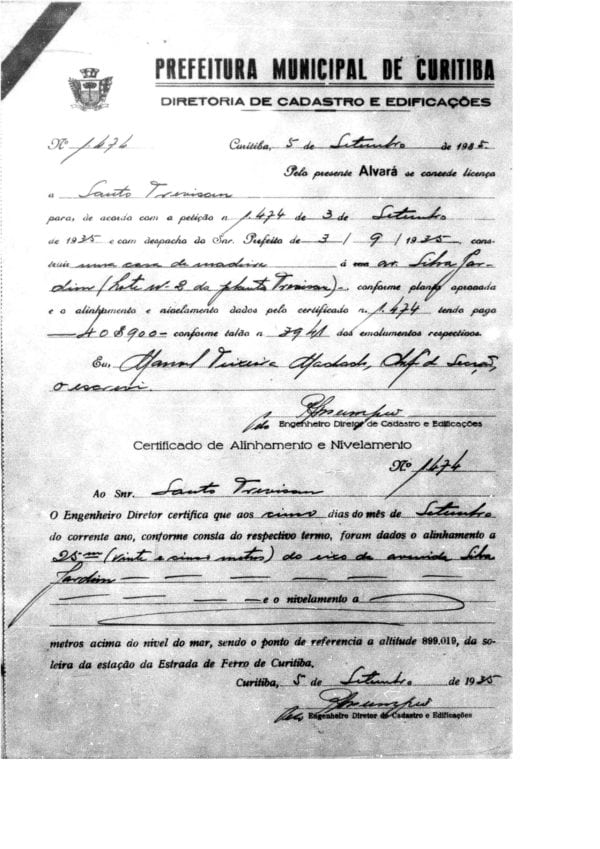 PREFEITURA MUNICIPAL DE CURITIBA
DIRETORIA DE CADASTRO E EDIFICAÇÕES
Nº 1.474 Curitiba, 5 de Setembro de 1935.
Pelo presente Alvará se concede licença
a Santo Trevisan
para, de acordo com a petição n. 1.474 de 3 de Setembro
de 1935 e com despacho do Snr. Prefeito de 3 / 9 / 1935 cons-
truir uma casa de madeira á av. Silva Jar-
dim (lote nº 8 da planta Trevisan) -, conforme planta aprovada
e o alinhamento e nivelamento dados pelo certificado n. 1.474 tendo pago
40$900 - conforme talão n. 3941 dos emolumentos respectivos.
Eu, Manoel Teixeira Machado, Chf. d Secção,
o escrevi.
Engenheiro Diretor de Cadastro e Edificações
Certificado de Alinhamento e Nivelamento
Nº 1474
Ao Snr. Santo Trevisan
O Engenheiro Diretor certifica que aos cinco dias do mês de Setembro
do corrente ano, conforme consta do respectivo termo, foram dados o alinhamento a
25 (vinte e cinco metros) do eixo da avenida Silva
Jardim
e o nivelamento a
metros acima do nivel do mar, sendo o ponto de referencia a altitude 899,019, da so-
leira da estação da Estrada de Ferro de Curitiba.
Curitiba, 5 de Setembro de 1935
Engenheiro Diretor de Cadastro e Edificações